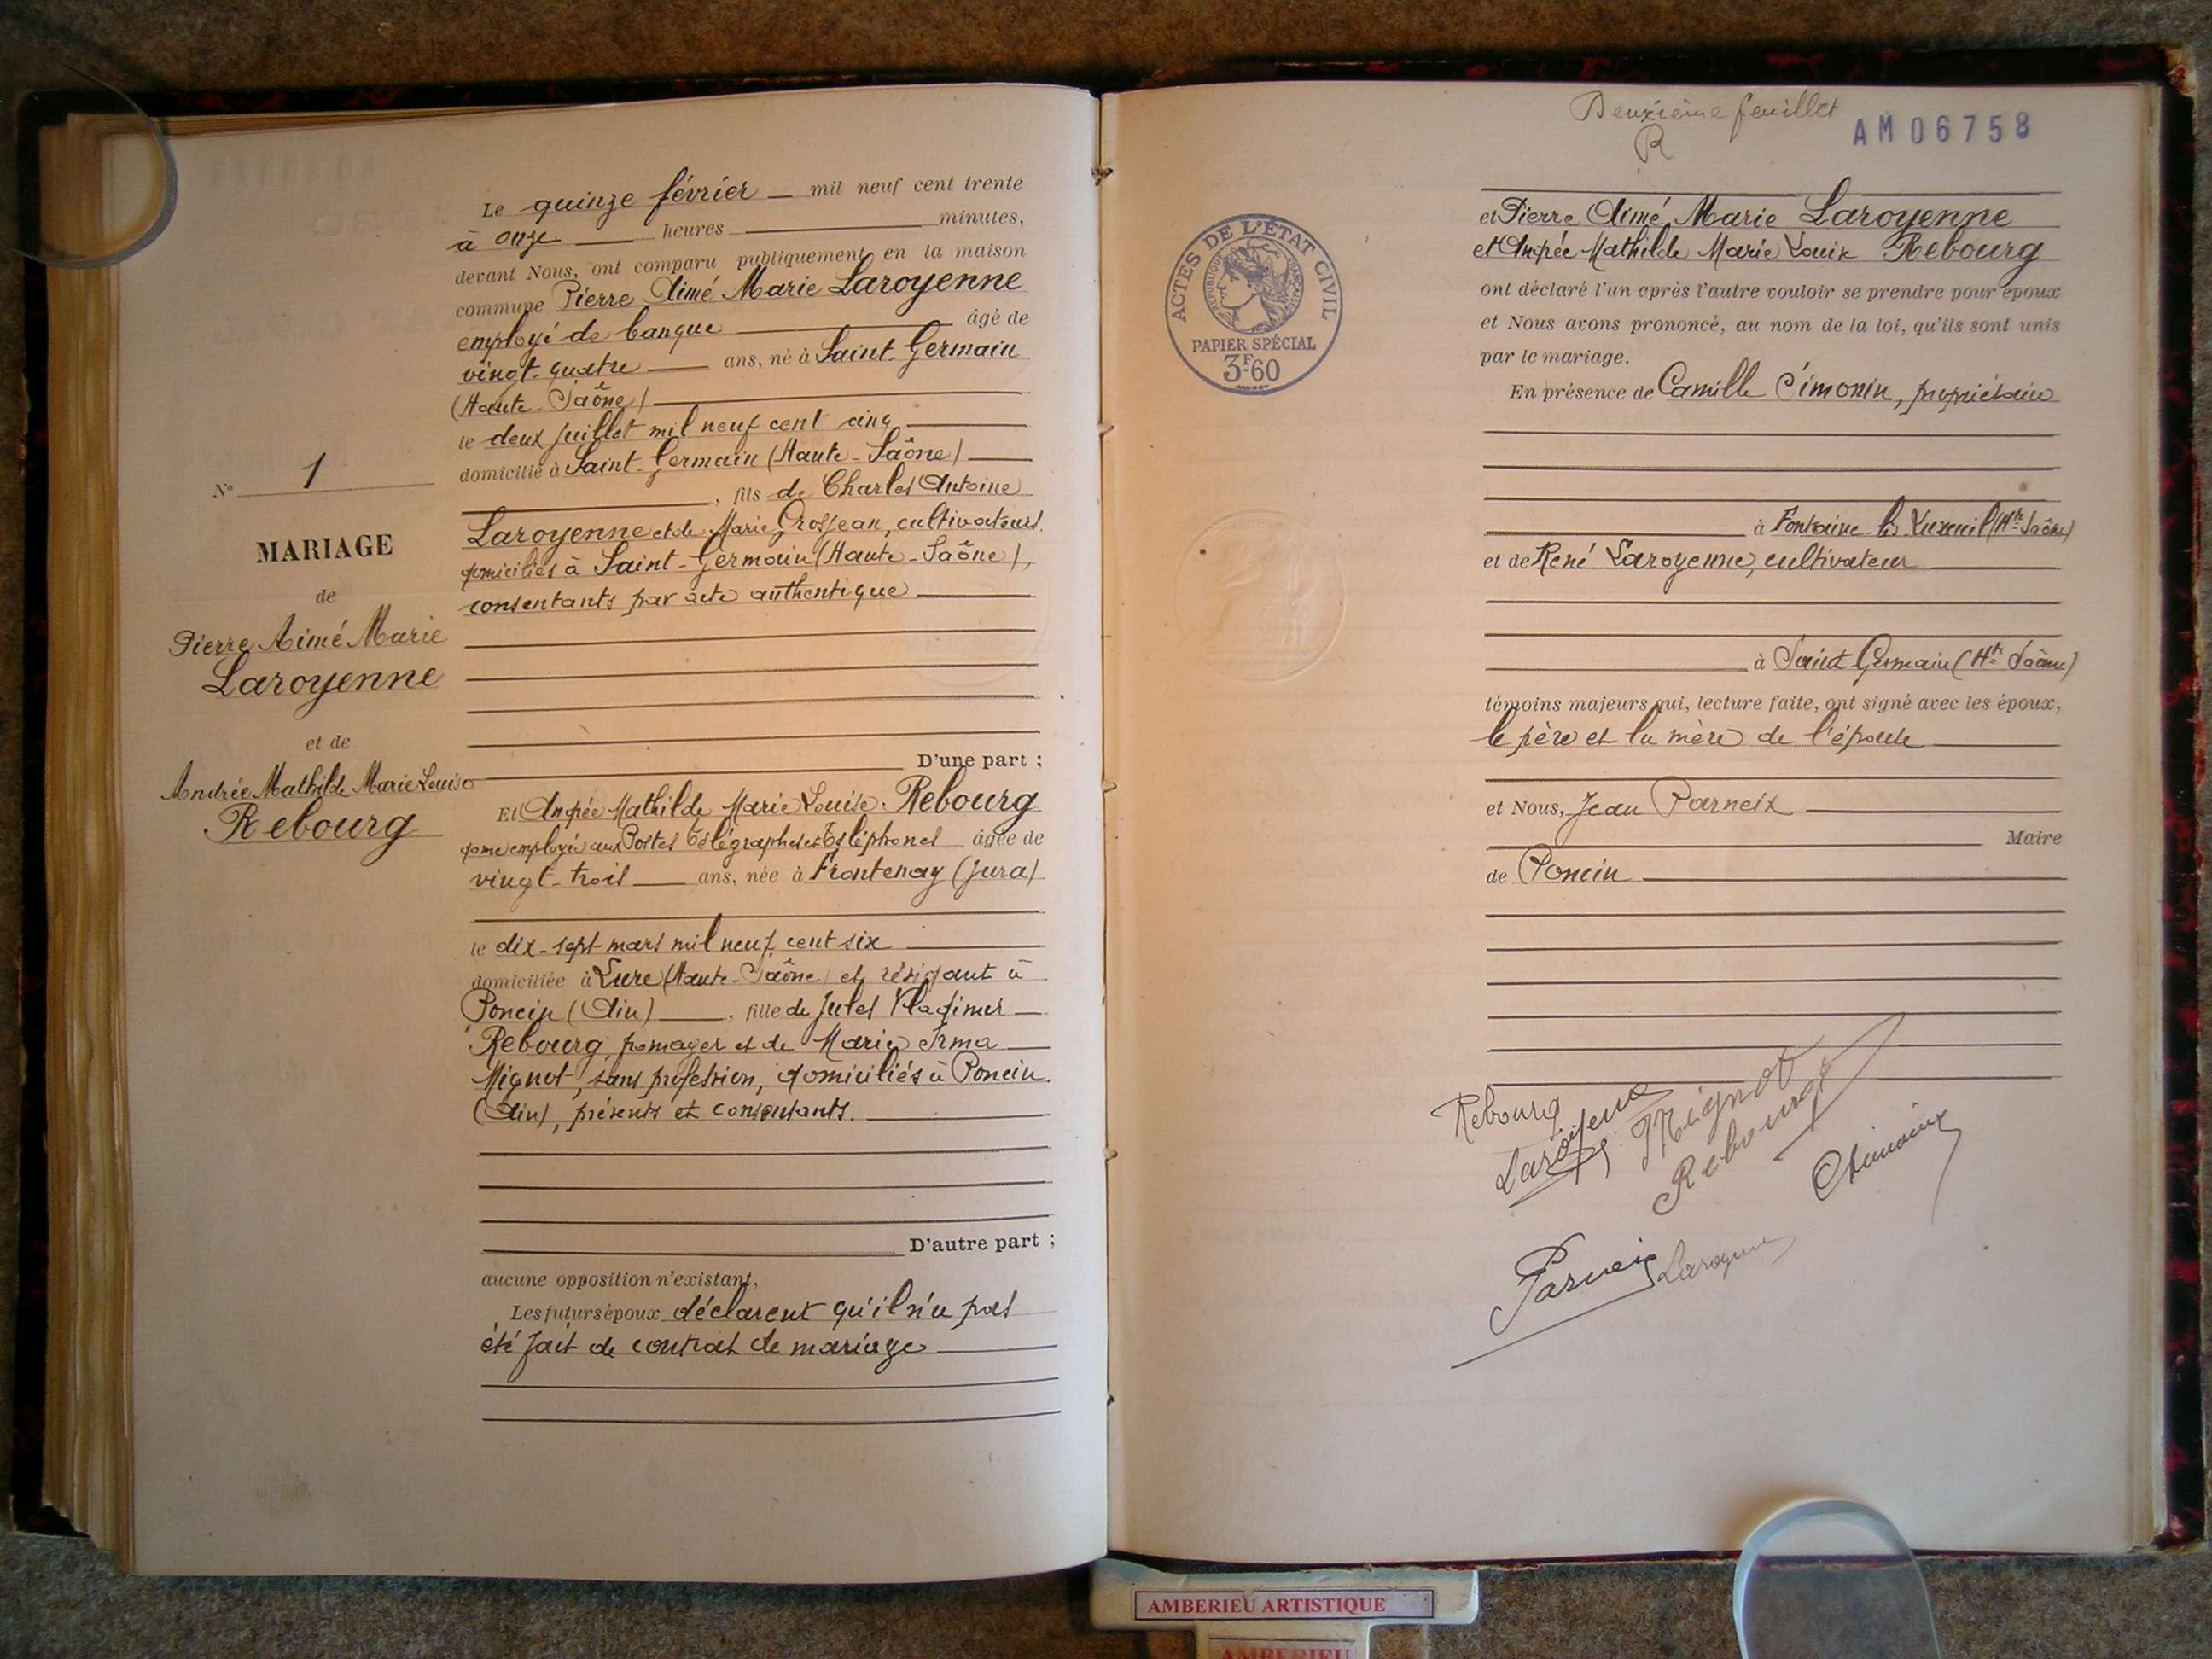 Le quinze février mil neuf cent trente
à onze heures minutes,
devant Nous, ont comparu publiquement en la maison
commune Pierre Aimé Marie Laroyenne
employé de banque âgé de
vingt-quatre ans, né à Saint-Germain
(Haute-Saône)
le deux juillet mil neuf cent cinq
domicilié à Saint-Germain (Haute-Saône)
, fils de Charles Antoine
Laroyenne et de Marie Grosjean, cultivateurs
domiciliés à Saint-Germain (Haute-Saône),
consentants par acte authentique
D'une part ;
Et Andrée Mathilde Marie Louise Rebourg
dame employée aux Postes Télégraphes et Téléphones âgée de
vingt-trois ans, née à Frontenay (Jura)
le dix-sept mars mil neuf cent six
domiciliée à Lure (Haute-Saône) et résidant à
Poncin (Ain) , fille de Jules Vladimer
Rebourg, fromager et de Marie Irma
Mignot, sans profession, domiciliés à Poncin
(Ain), présents et consentants.
D'autre part ;
aucune opposition n'existant,
Les futurs époux déclarent qu'il n'a pas
été fait de contrat de mariage
N° 1
MARIAGE
de
Pierre Aimé Marie
Laroyenne
et de
Andrée Mathilde Marie Louise
Rebourg
Deuxième feuillet
R
AM 06758
ACTES DE L'ETAT CIVIL
REPUBLIQUE FRANÇAISE
PAPIER SPÉCIAL
3F60
et Pierre Aimé Marie Laroyenne
et Andrée Mathilde Marie Louise Rebourg
ont déclaré l'un après l'autre vouloir se prendre pour époux
et Nous avons prononcé, au nom de la loi, qu'ils sont unis
par le mariage.
En présence de Camille Simonin, propriétaire
à Fontaine-les-Luxeuil (Hte Saône)
et de René Laroyenne, cultivateur
à Saint Germain (Hte Saône)
témoins majeurs qui, lecture faite, ont signé avec les époux,
le père et la mère de l'épouse
et Nous, Jean Parneix
Maire
de Poncin
Rebourg
Laroyenne
Mignot
Rebourg
Parneix
Laroyenne
AMBERIEU ARTISTIQUE
AMBERIEU